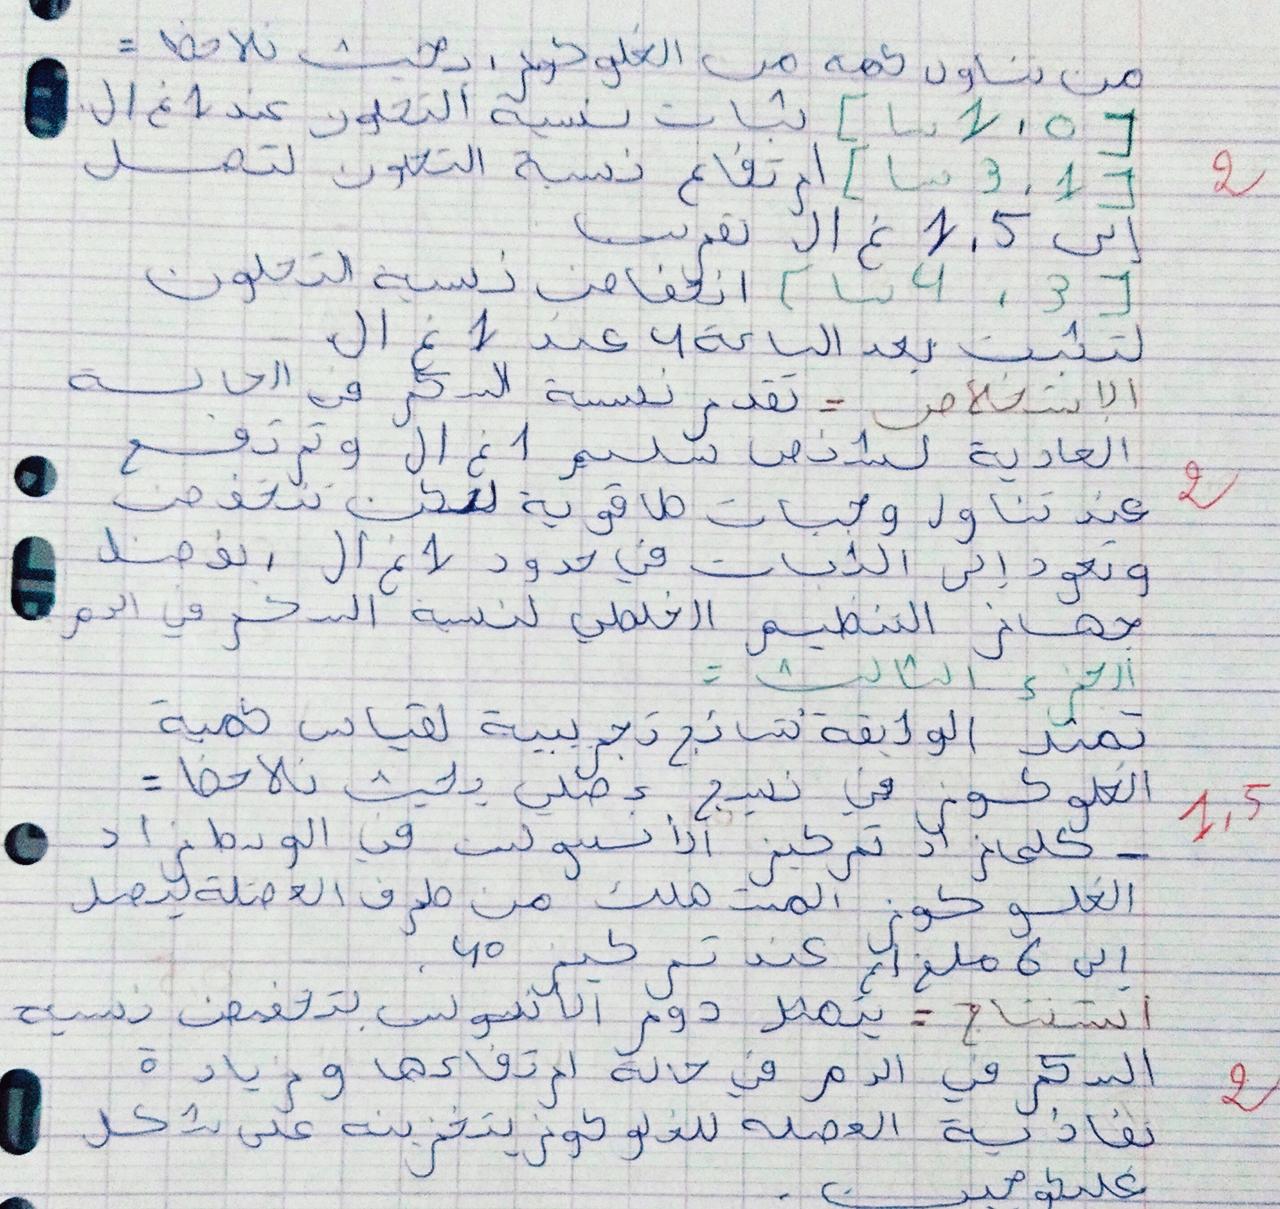 من تناول كمية من الغلوكوز، بحيث نلاحظ =
[0، 1 سا] ثبات نسبة التحلون عند 1 غ/ل
2
[1، 3 سا] ارتفاع نسبة التحلون لتصل
إلى 1,5 غ/ل تقريبا
[3، 4 سا] انخفاض نسبة التحلون
لتثبت بعد الساعة 4 عند 1 غ/ل
الاستخلاص = تقدر نسبة السكر في الحالة
العادية لشخص سليم 1 غ/ل وترتفع
2
عند تناول وجبات طاقوية لكن تنخفض
وتعود إلى الثبات في حدود 1 غ/ل، بفضل
جهاز التنظيم الخلطي لنسبة السكر في الدم
الجزء الثالث =
تمثل الوثيقة نتائج تجريبية لقياس كمية
الغلوكوز في نسيج عضلي بحيث نلاحظ =
1,5
- كلما زاد تركيز الأنسولين في الوسط زاد
الغلوكوز المستهلك من طرف العضلة ليصل
إلى 6 ملغ/غ عند تركيز 40.
استنتاج = يتمثل دور الأنسولين بتخفيض نسبة
السكر في الدم في حالة ارتفاعها وزيادة
2
نفاذية العضلة للغلوكوز بتخزينه على شكل
غليكوجين.